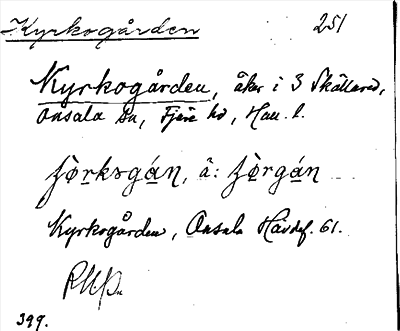 Kyrkogården 251
Kyrkogården, åker i 3 Skällared,
Onsala sn, Fjäre hd, Hall. l.
jørksgán, â: jòrgán
Kyrkogården, Onsala Hävdef. 61.
399.